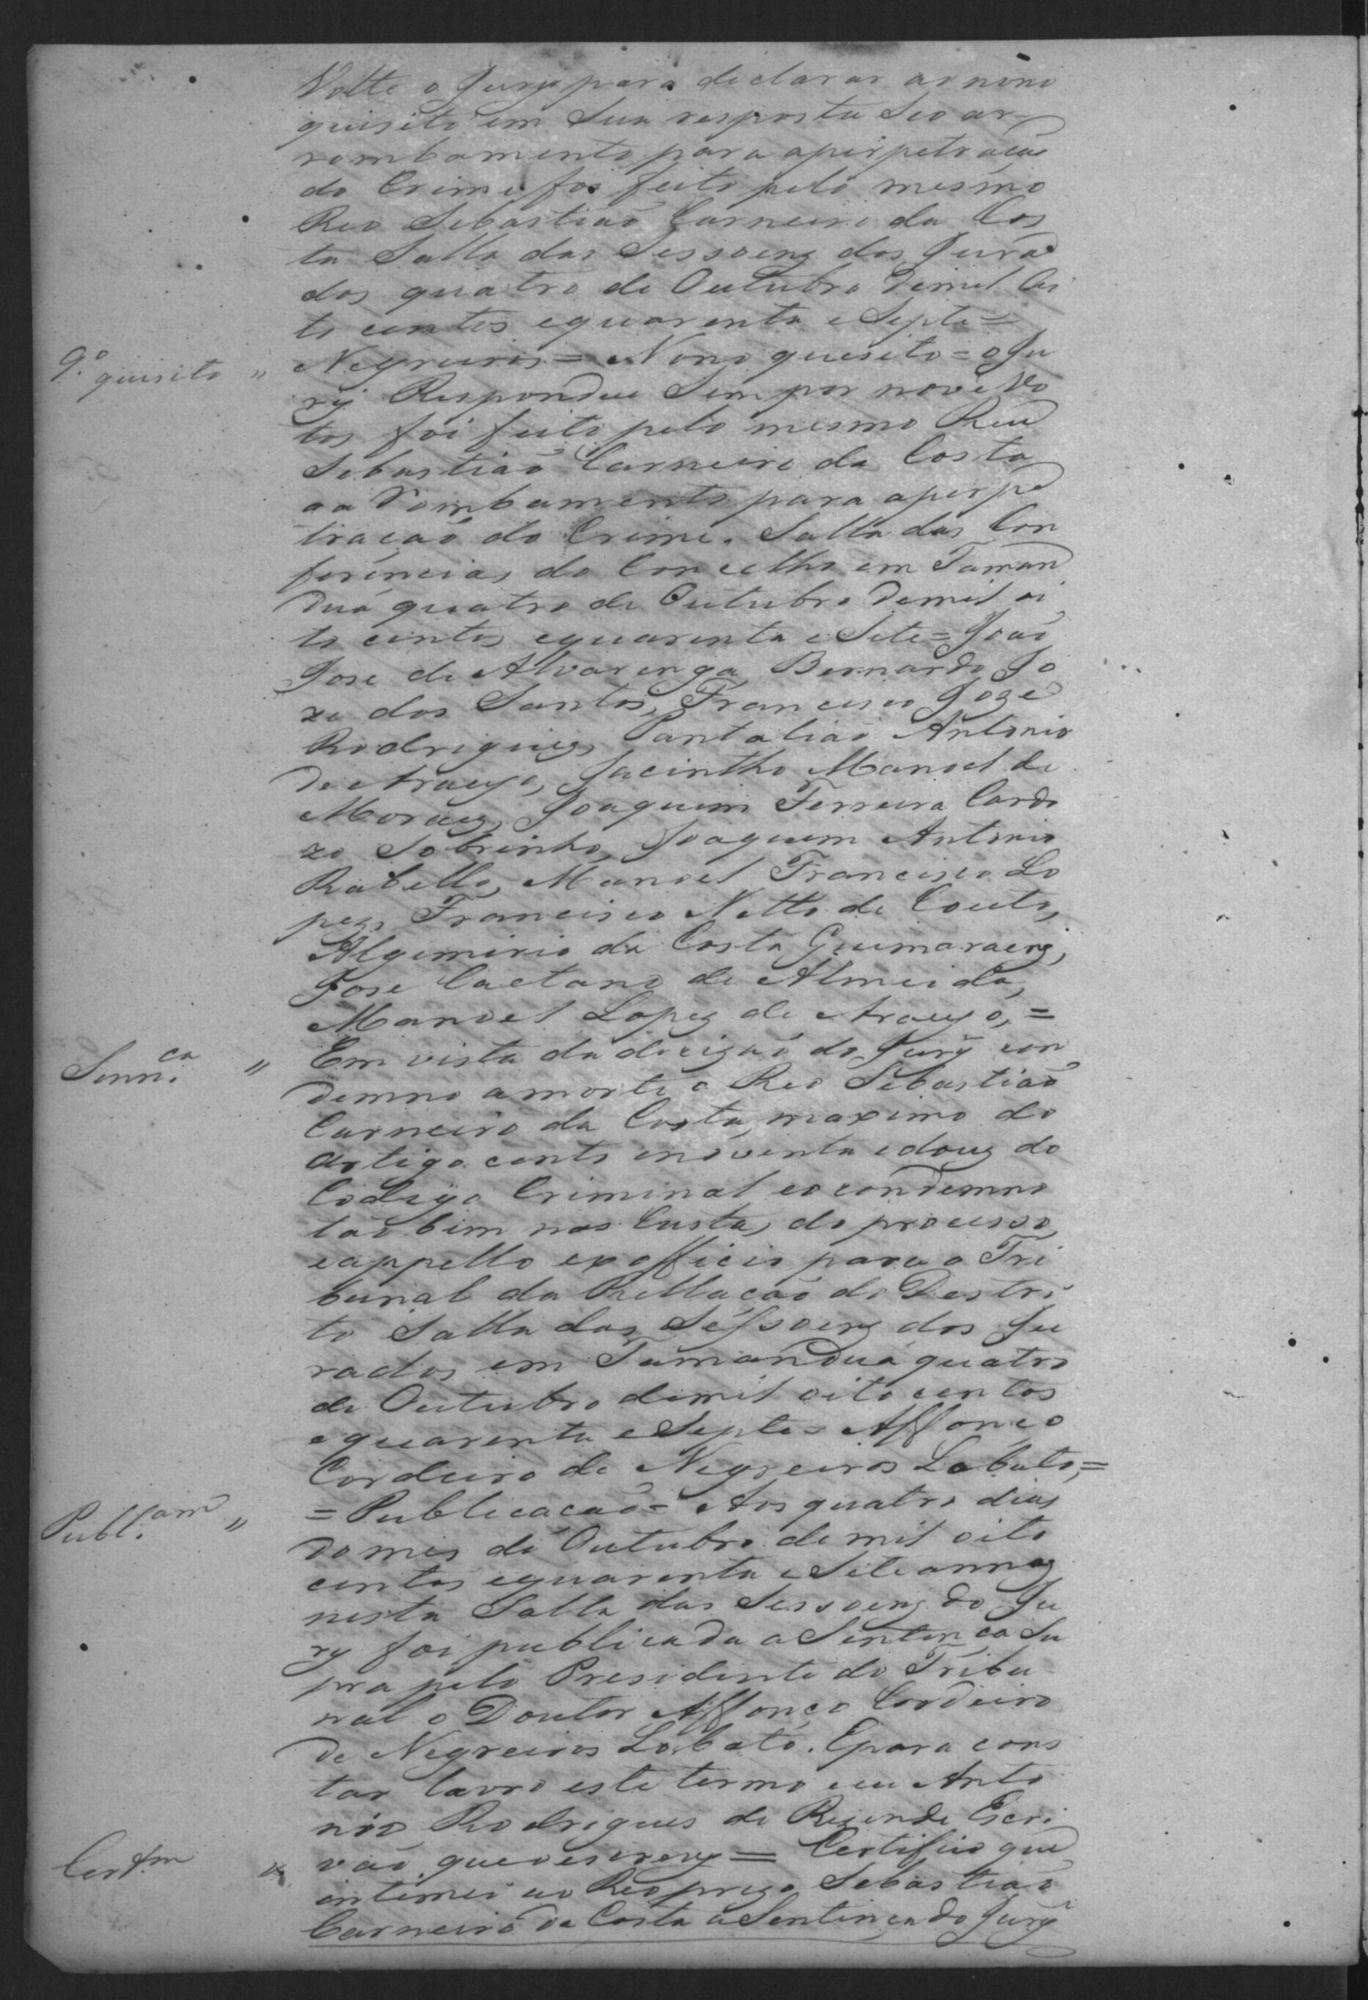 Volte o Jury para declarar ao nono
quisito em Sua resposta Se o ar-
rombamento para a perpetração
do Crime foi feito pelo mesmo
Reo Sebastião Carneiro da Cos
ta Salla das Sessoens dos Jura
dos quatro de Outubro de mil Oi
to centos e quarenta e Septe =
9.º quisito " Negreiros = Nono quesito = o Ju
ry Respondeu Sim por nove Vo
tos foi feito pelo mesmo Reu
Sebastião Carneiro da Costa
o arombamento para a perpe
tração do Crime. Salla das Con
ferencias do Concelho em Taman
duá quatro de Outubro de mil oi
to centos e quarenta e Sete = João
Jose de Alvarenga, Bernardo Jo
ze dos Santos, Francisco Joze
Rodrigues, Pantalião Antonio
de Araujo, Jacintho Manoel de
Moraes, Joaquim Ferreira Cardo
zo Sobrinho, Joaquim Antonio
Rabello, Manoel Francisco Lo
pes, Francisco Netto do Couto,
Algemirio da Costa Guimaraens,
Jose Caetano de Almeida,
Manoel Lopes de Araujo, =
Senn.ca " Em vista da decizão do Jury con
demno a morte o Reo Sebastião
Carneiro da Costa, maximo do
artigo cento e noventa e dous do
Codigo Criminal e o condemno
tão bem nas Custas do processo,
e appello ex officio para o Tri
bunal da Rellação do Destri
to Salla das Sessoens dos Ju
rados em Tamanduá quatro
de Outubro de mil oito centos
e quarenta e Septe = Affonço
Cordeiro de Negreiros Lobato, =
Publ.cam " = Publicação = Aos quatro dias
do mes de Outubro de mil oito
centos e quarenta e Sete annos
nesta Salla das Sessoens do Ju
ry foi publicada a Sentença Su
pra pelo Presidente do Tribu
nal o Doutor Affonço Cordeiro
de Negreiros Lobato. E para cons
tar lavro este termo eu Anto
nio Rodrigues de Rezende Escri
Cert.am " vão que o escrevy = Certifico que
intimei ao Reo prezo Sebastião
Carneiro da Costa a Sentença do Jury